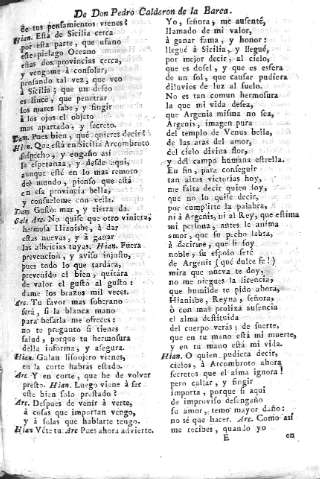 De Don Pedro Calderon de la Barca.
de tus pensamientos vienes?
Hian. Està de Sicilia cerca
por esta parte, que ufano
este pielago Oceano
estas dos provincias cerca,
y vengome à consolar,
pensando tal vez, que veo
à Sicilia; que un deseo
es lince, que penetrar
los mares sabe, y fingir
à los ojos el objeto
mas apartado, y secreto.
Dam. Pues bien, què quieres decir?
Hian. Que està en Sicilia Arcombroto
sospecho, y engaño asi
la esperanza, y desde aqui,
aunque estè en lo mas remoto
del mundo, pienso que està
en esta provincia bella,
y consuelome con vella.
Dam. Gusto mar, y tierra dà.
Sale Arc. No quise que otro viniera,
hermosa Hianisbe, à dar
estas nuevas, y à ganar
las albricias tuyas. Hian. Fuera
prevencion, y aviso injusto,
pues todo lo que tardàra,
prevenido el bien, quitàra
de valor el gusto al gusto:
dame los brazos mil veces.
Arc. Tu favor mas soberano
serà, si la blanca mano
para besarla me ofreces:
no te pregunto si tienes
salud, porque tu hermosura
della informa, y asegura.
Hian. Galan lisonjero vienes,
en la corte habràs estado.
Arc. Y en corte, que he de volver
presto. Hian. Luego viene à ser
este bien solo prestado?
Arc. Despues de venir à verte,
à cosas que importan vengo,
y à solas que hablarte tengo.
Hian. Vete tu. Arc. Pues ahora advierte.
Yo, señora, me ausentè,
llamado de mi valor,
à ganar fama, y honor:
lleguè à Sicilia, y lleguè,
por mejor decir, al cielo,
que es dosel, y que es esfera
de un sol, que causar pudiera
diluvios de luz al suelo.
No es tan comun hermosura
la que mi vida desea,
que Argenis misma no sea,
Argenis, imagen pura
del templo de Venus bella,
de las aras del amor,
del cielo divina flor,
y del campo humana estrella.
En fin, para conseguir
tan altas victorias hoy,
me falta decir quien soy,
que no lo quise decir,
por cumplirte la palabra,
ni à Argenis, ni al Rey, que estima
mi persona, antes le anima
amor, que su pecho labra,
à decirme, que si soy
noble, su esposo serè
de Argenis (què dulce fe!)
mira que nueva te doy,
no me niegues la licencia,
que humilde te pido ahora,
Hianisbe, Reyna, señora,
ò con mas prolixa ausencia
el alma destituida
del cuerpo veràs; de suerte,
que en tu mano està mi muerte,
y en tu mano està mi vida.
Hian. O quien pudiera decir,
cielos, à Arcombroto ahora
secretos que el alma ignora!
pero callar, y fingir
importa, porque si aqui
de improviso desengaño
su amor, temo mayor daño:
no sè que hacer. Arc. Como asi
me recibes, quando yo
E en